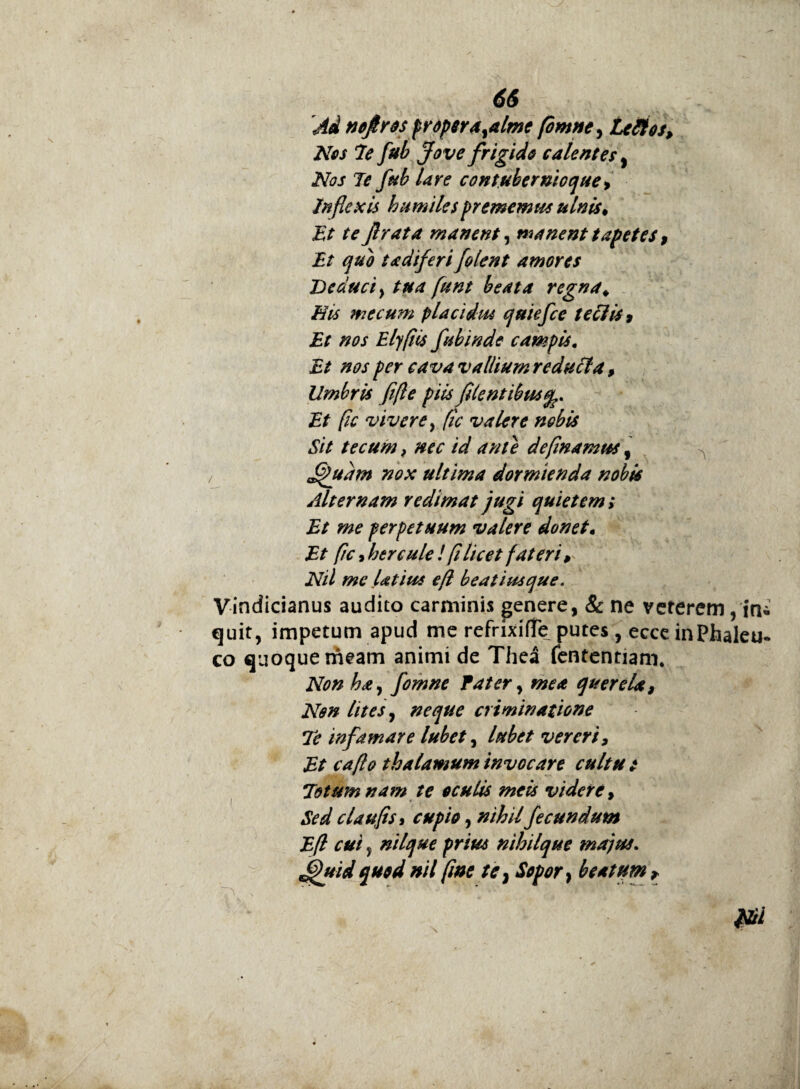 66
Ad noſtros propera, alme ſomne, Lectos,
Nos Te ſub Jove frigido calentes,
Nos Te ſub lare contubernioque,
Inflexis humiles prememus ulnis.
Et te ſtrata manent, manent tapetes,
Et quo tædiferi ſolent amores
Deduci, tua ſunt beata regna.
His mecum placidus quieſce tectis,
Et nos Elyſiis ſubinde campis.
Et nos per cava vallium reducta,
Umbris ſiſte piis ſilentibusq́;.
Et ſic vivere, ſic valere nobis
Sit tecum, nec id ante deſinamus,
Quàm nox ultima dormienda nobis
Alternam redimat jugi quietem;
Et me perpetuum valere donet.
Et ſic, hercule! ſi licet fateri,
Nil me lætius eſt beatiusque.
Vindicianus audito carminis genere, & ne veterem, in-
quit, impetum apud me refrixiſſe putes, ecce in Phaleu-
co quoque meam animi de Theâ ſententiam.
Non hæ, ſomne Pater, meæ querelæ,
Non lites, neque criminatione
Te infamare lubet, lubet vereri,
Et caſto thalamum invocare cultu:
Totum nam te oculis meis videre,
Sed clauſis, cupio, nihil ſecundum
Eſt cui, nilque prius nihilque majus.
Quid quod nil ſine te, Sopor, beatum,
Nil